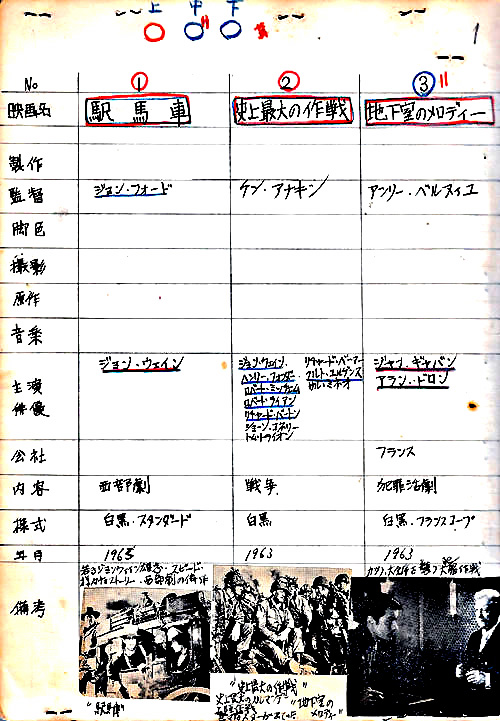 上 中 下
1
No ① ② ③
映画名 駅馬車 史上最大の作戦 地下室のメロディー
製作
監督 ジョン・フォード ケン・アナキン アンリー・ベルヌイユ
脚色
撮影
原作
音楽
主演俳優 ジョン・ウェイン ジャン・ギャバン
アラン・ドロン
ジョン・ウェイン、
ヘンリー・フォンダー
ロバート・ミッチャム
ロバート・ライアン
リチャード・バートン
ショーン・コネリー
リチャード・ベーマー
クルト・ユルゲンス
会社 フランス
内容 西部劇 戦争 犯罪活劇
様式 白黒・スタンダード 白黒 白黒・フランスコープ
年月 1963 1963
備考
若きジョン・ウェイン スピード
ストーリー・西部劇の
作戦
"駅馬車"
"史上最大の作戦"
"地下室のメロディー"